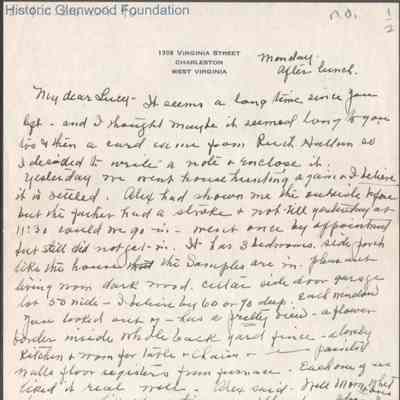 Historic Glenwood Foundation
n.d. 1/2
1308 VIRGINIA STREET
CHARLESTON
WEST VIRGINIA
Monday
After lunch.
My dear Lucy - It seems a long time since you
left - and I thought maybe it seemed long to you
too & then a card came from Ruth so
I decided to write a note & enclose it.
Yesterday we went house hunting again & I believe
it is settled. Alex had shown me the outside before
but the father had a stroke & not till yesterday at
11:30 could we go in - went once by appointment
but still did not get in. It has 3 bedrooms. side porch
like the house the Samples are in. pleasant
living room dark wood. cellar side door garage
lot 50 wide - I believe by 60 or 70 deep. Each window
you looked out of - has a pretty view - a flower
border inside whole back yard fence - a lovely
kitchen & room for table & chairs & painted
walls floor registers from furnace. Each one of us
liked it real well. Alex said - Well Mom, what